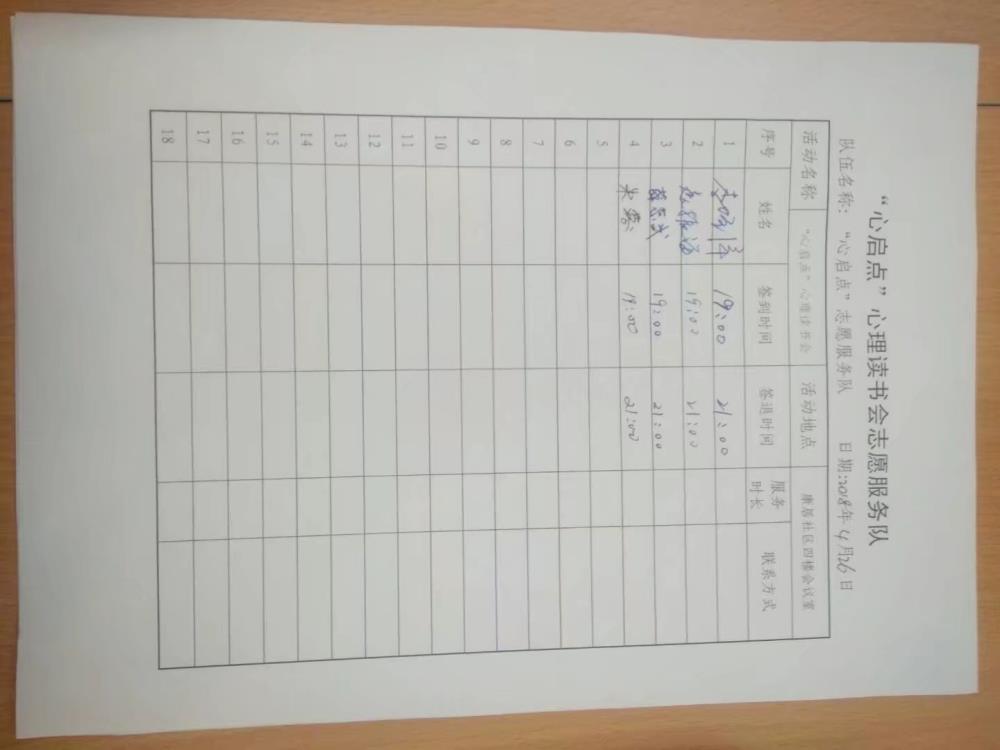 “心启点”心理读书会志愿服务队
队伍名称：“心启点”志愿服务队 日期:2018年4月26日
活动名称 “心启点”心理读书会 活动地点 康居社区四楼会议室
序号 姓名 签到时间 签退时间 服务时长 联系方式
1 19:00 21:00
2 19:00 21:00
3 薛志武 19:00 21:00
4 19:00 21:00
5
6
7
8
9
10
11
12
13
14
15
16
17
18